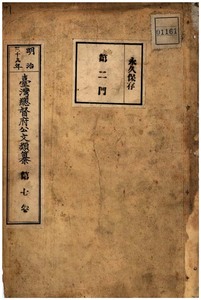 明治
三十五年
臺灣總督府公文類纂 第七卷
永久保存
第二門
01161